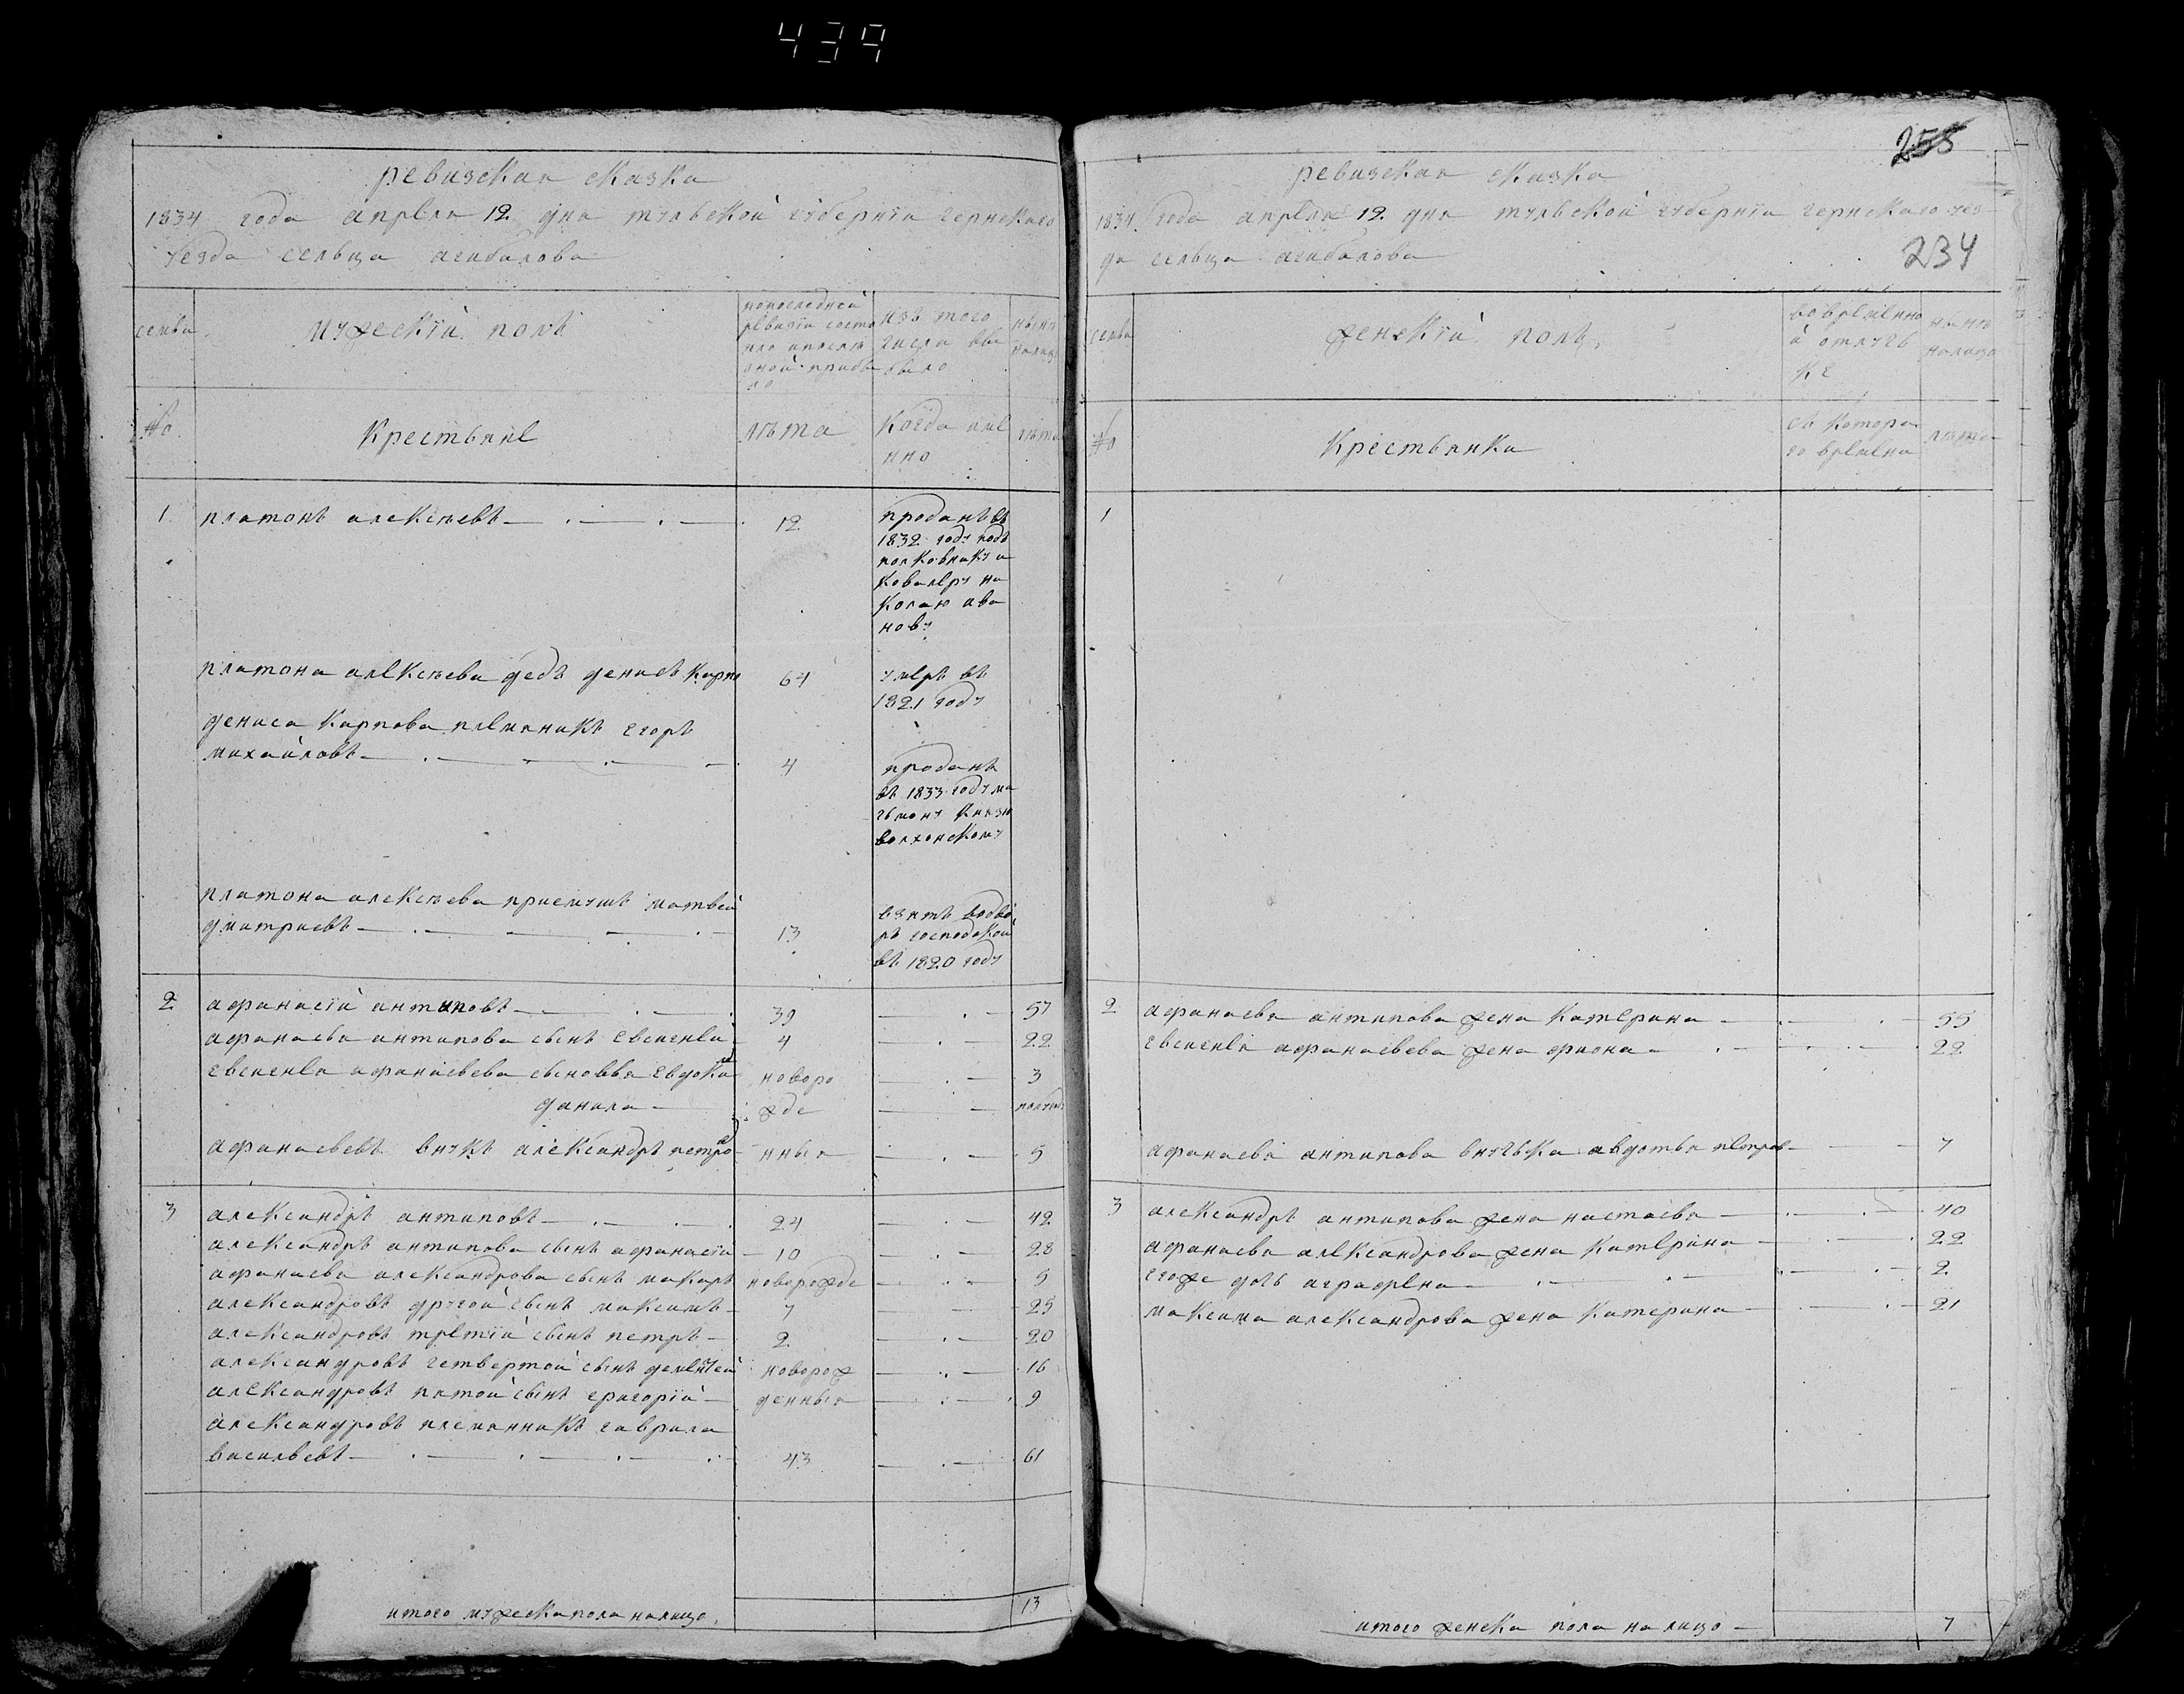 439
ревизская сказка
1834 года апреля 12 дня тульской губернїи чернскаго
уезда сельца агибалова
семьи
мужескїй полъ
попоследней
ревизїи состо
яло ипосле
оной прибы
ло
изъ того
числа вы
было
нынѣ
налицо
№
Крестьяне
лѣта
Когда имя
нно
лѣта
1 платонъ алексѣевъ 12
проданъ въ
1832 году подъ
полковнику и
ковалеру ни
колаю ива
нову
платона алексѣева дедъ денисъ карпо 64
умеръ въ
1821 году
дениса карпова племяникъ егоръ
михайловъ 4
проданъ
въ 1833 году ма
князю
волхонскому
платона алексѣева приемушъ матвей
дмитриевъ 13
взятъ водво
ръ господской
въ 1820 году
2 афанасїй антиповъ 39 57
афанасья антипова сынъ евсигней 4 22
евсигнея афанасьева сыновья евдоки 3
новоро
данила
жде
полугод
афанасьевъ внукъ александръ петро нныя 5
3 александръ антиповъ 24 42
александръ антипова сынъ афанасїй 10 28
афанасья александрова сынъ макаръ новорожде 5
александровъ другой сынъ максимъ 7 25
александровъ третїй сынъ петръ 2 20
александровъ четвертой сынъ дементей новорож 16
александровъ пятой сынъ григорїй денныя 9
александровъ племянникъ гаврила
васильевъ 43 61
итого мужеска пола налицо 13
258
ревизская сказка
1834 года апреля 12 дня тульской губернїи чернскаго уез
да сельца агибалова
234
семьи
женскїй полъ
вовременно
й отлуч
ке
нынѣ
налицо
№
Крестьянки
съ которо
го времени
лѣта
1
2 афанасья антипова жена катерина 55
евсигнея афанасьева жена фиона 22
афанасья антипова внучька авдотья петров 7
3 александръ антипова жена настасья 40
афанасья александрова жена катерина 22
егоже дочь аграфена 2
максима александрова жена катерина 21
итого женска пола налицо 7